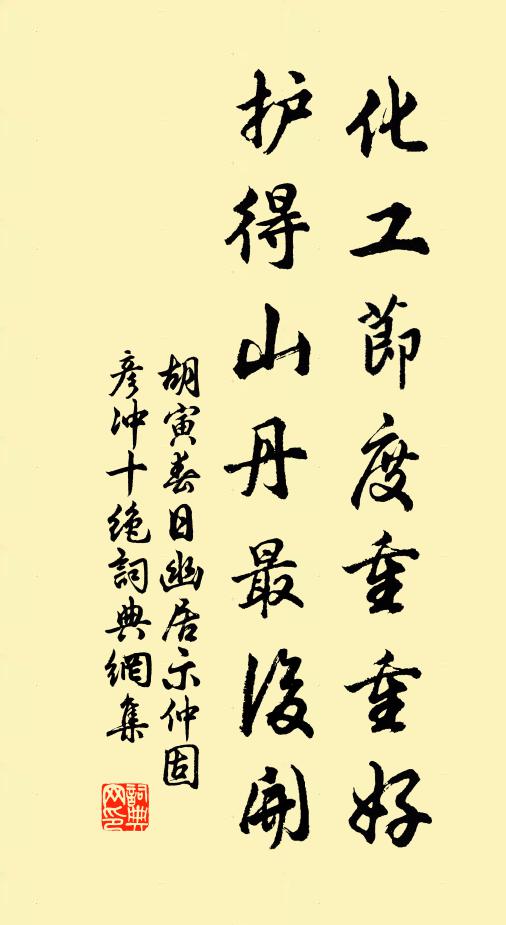 化工節度重重好
护得山丹最後開
胡寅春日幽居示仲固
彦冲十绝詞典網集
詞典网印